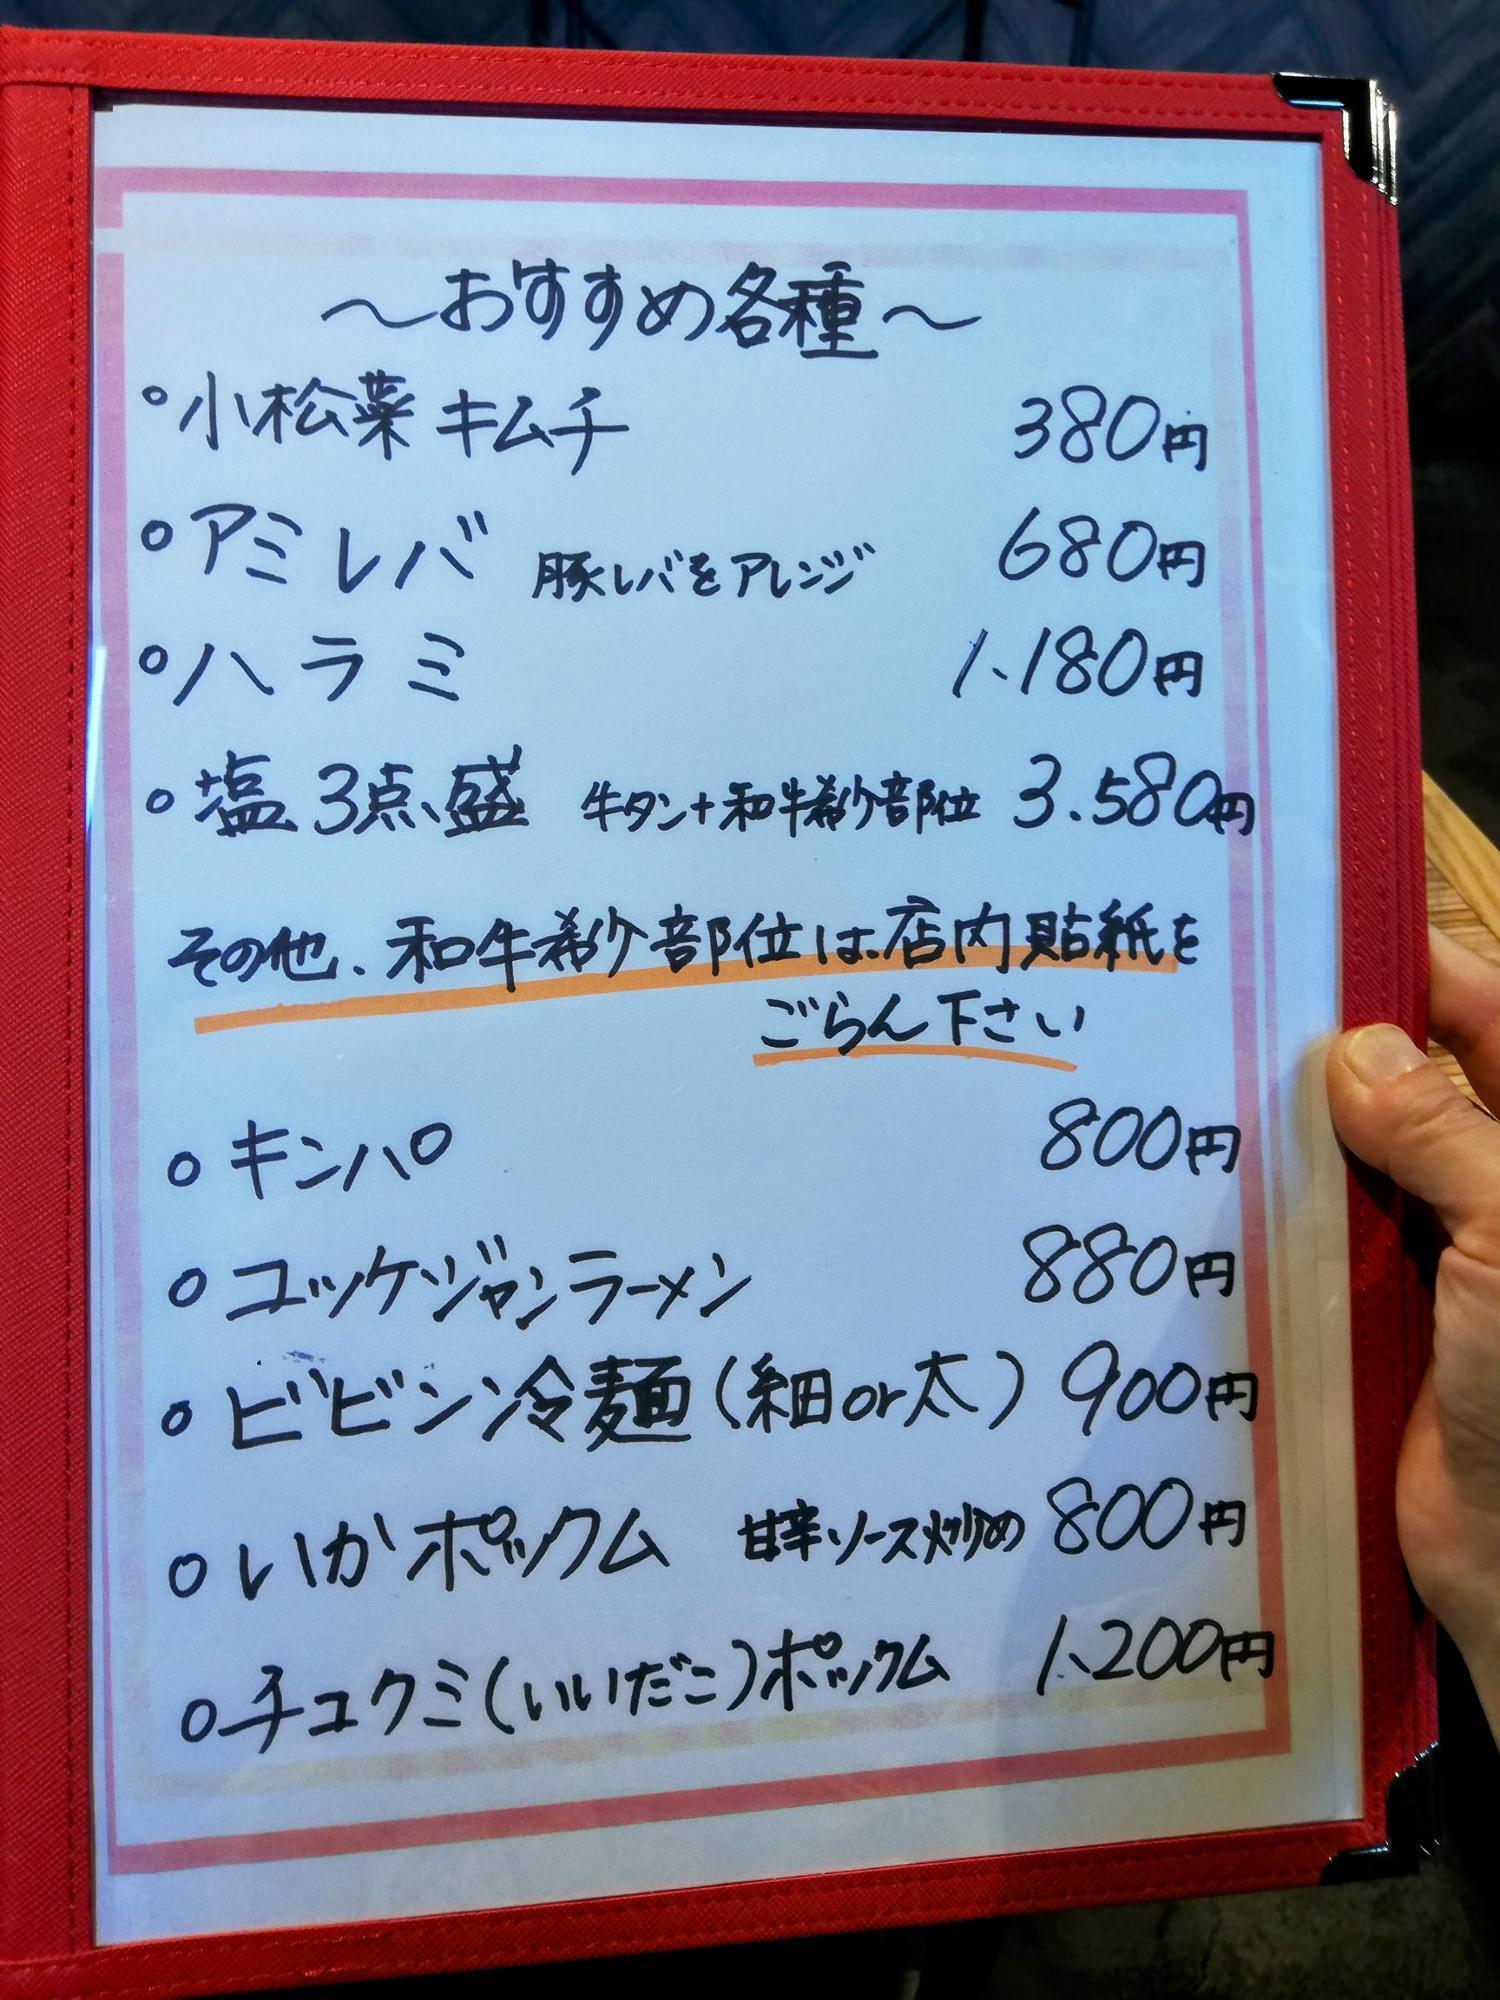 ～おすすめ各種～
○小松菜キムチ 380円
○アミレバ 豚レバをアレンジ 680円
○ハラミ 1、180円
○塩3点盛 牛タン+和牛希少部位 3.580円
その他、和牛希少部位は、店内貼紙を
ごらん下さい
○キンパ 800円
○ユッケジャンラーメン 880円
○ビビン冷麺(細or太) 900円
○いかポックム 甘辛ソース炒め 800円
○チュクミ(いいだこ)ポックム 1、200円